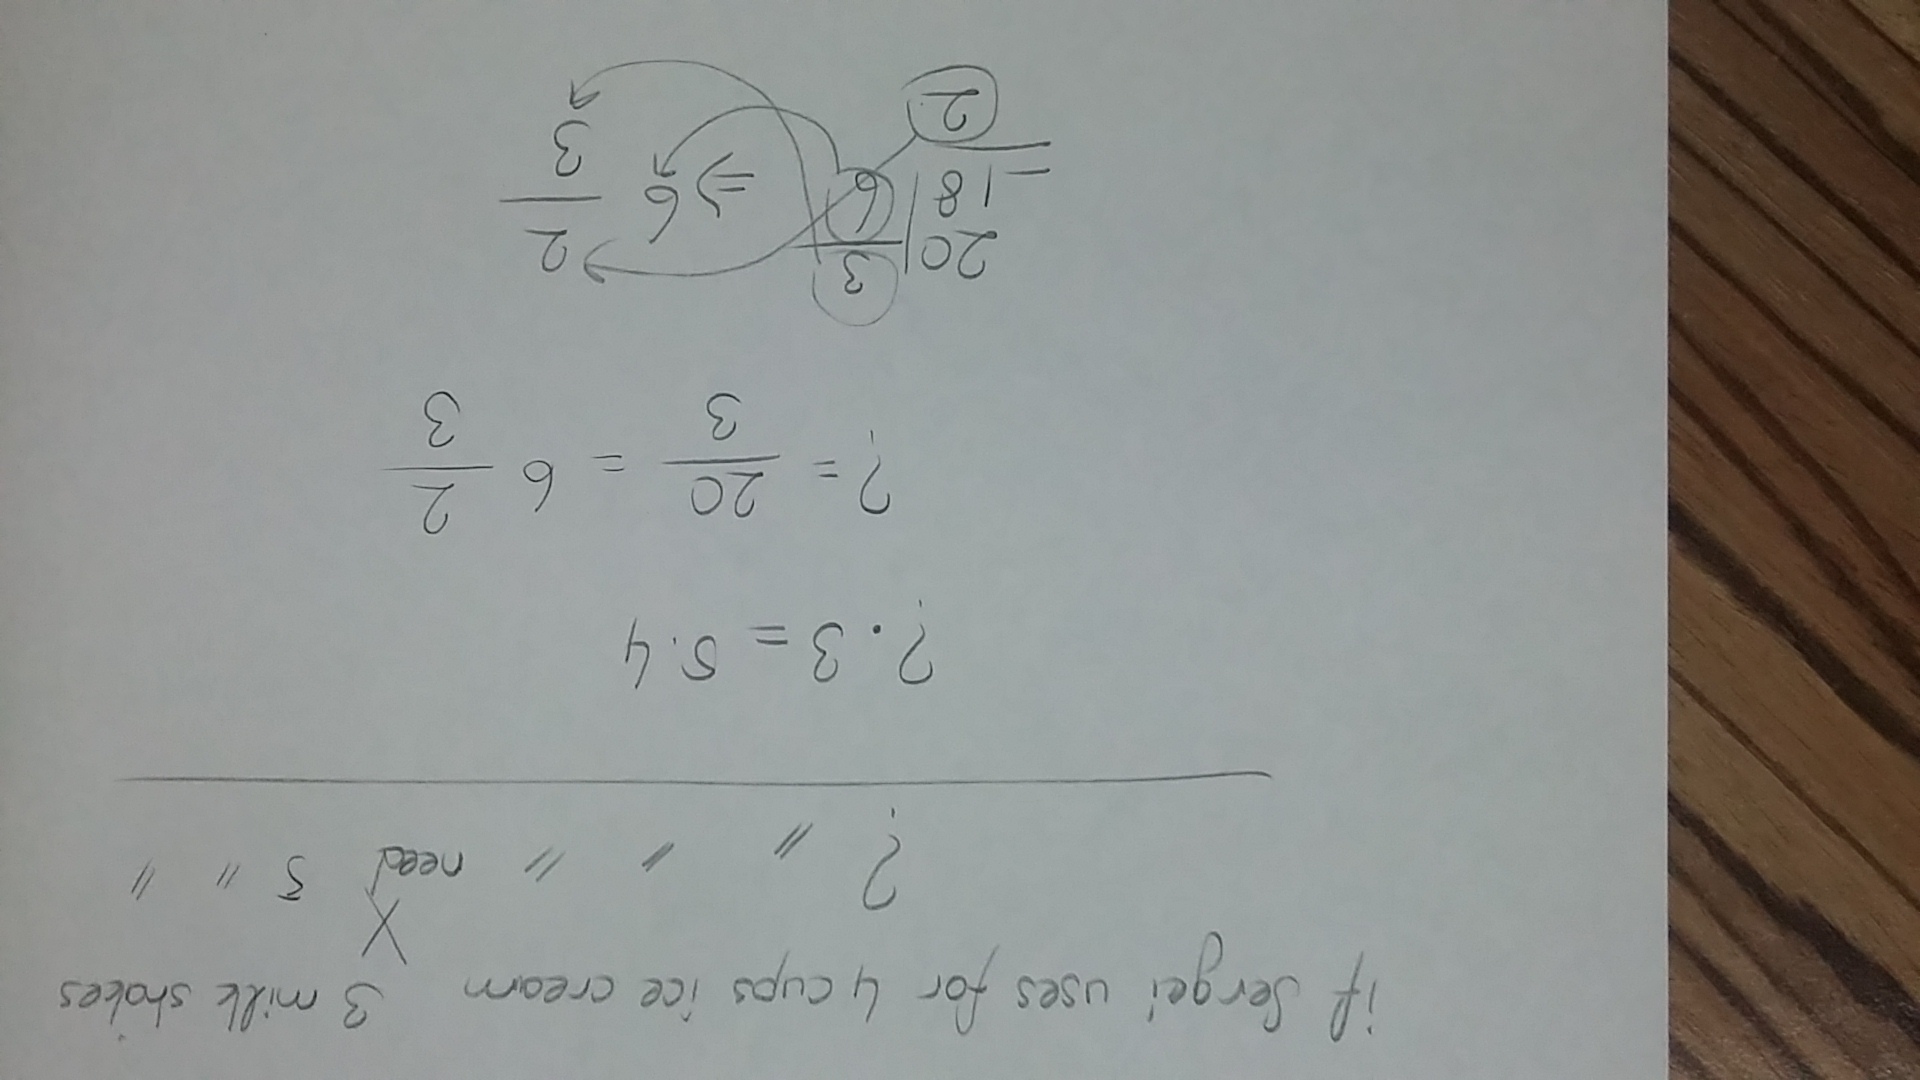 if Sergei uses for 4 cups ice cream 3 milk shakes
X
? " " " need 5 " "
? . 3 = 5.4
? = 20/3 = 6 2/3
20 | 3
18 | 6 => 6 2/3
=
2